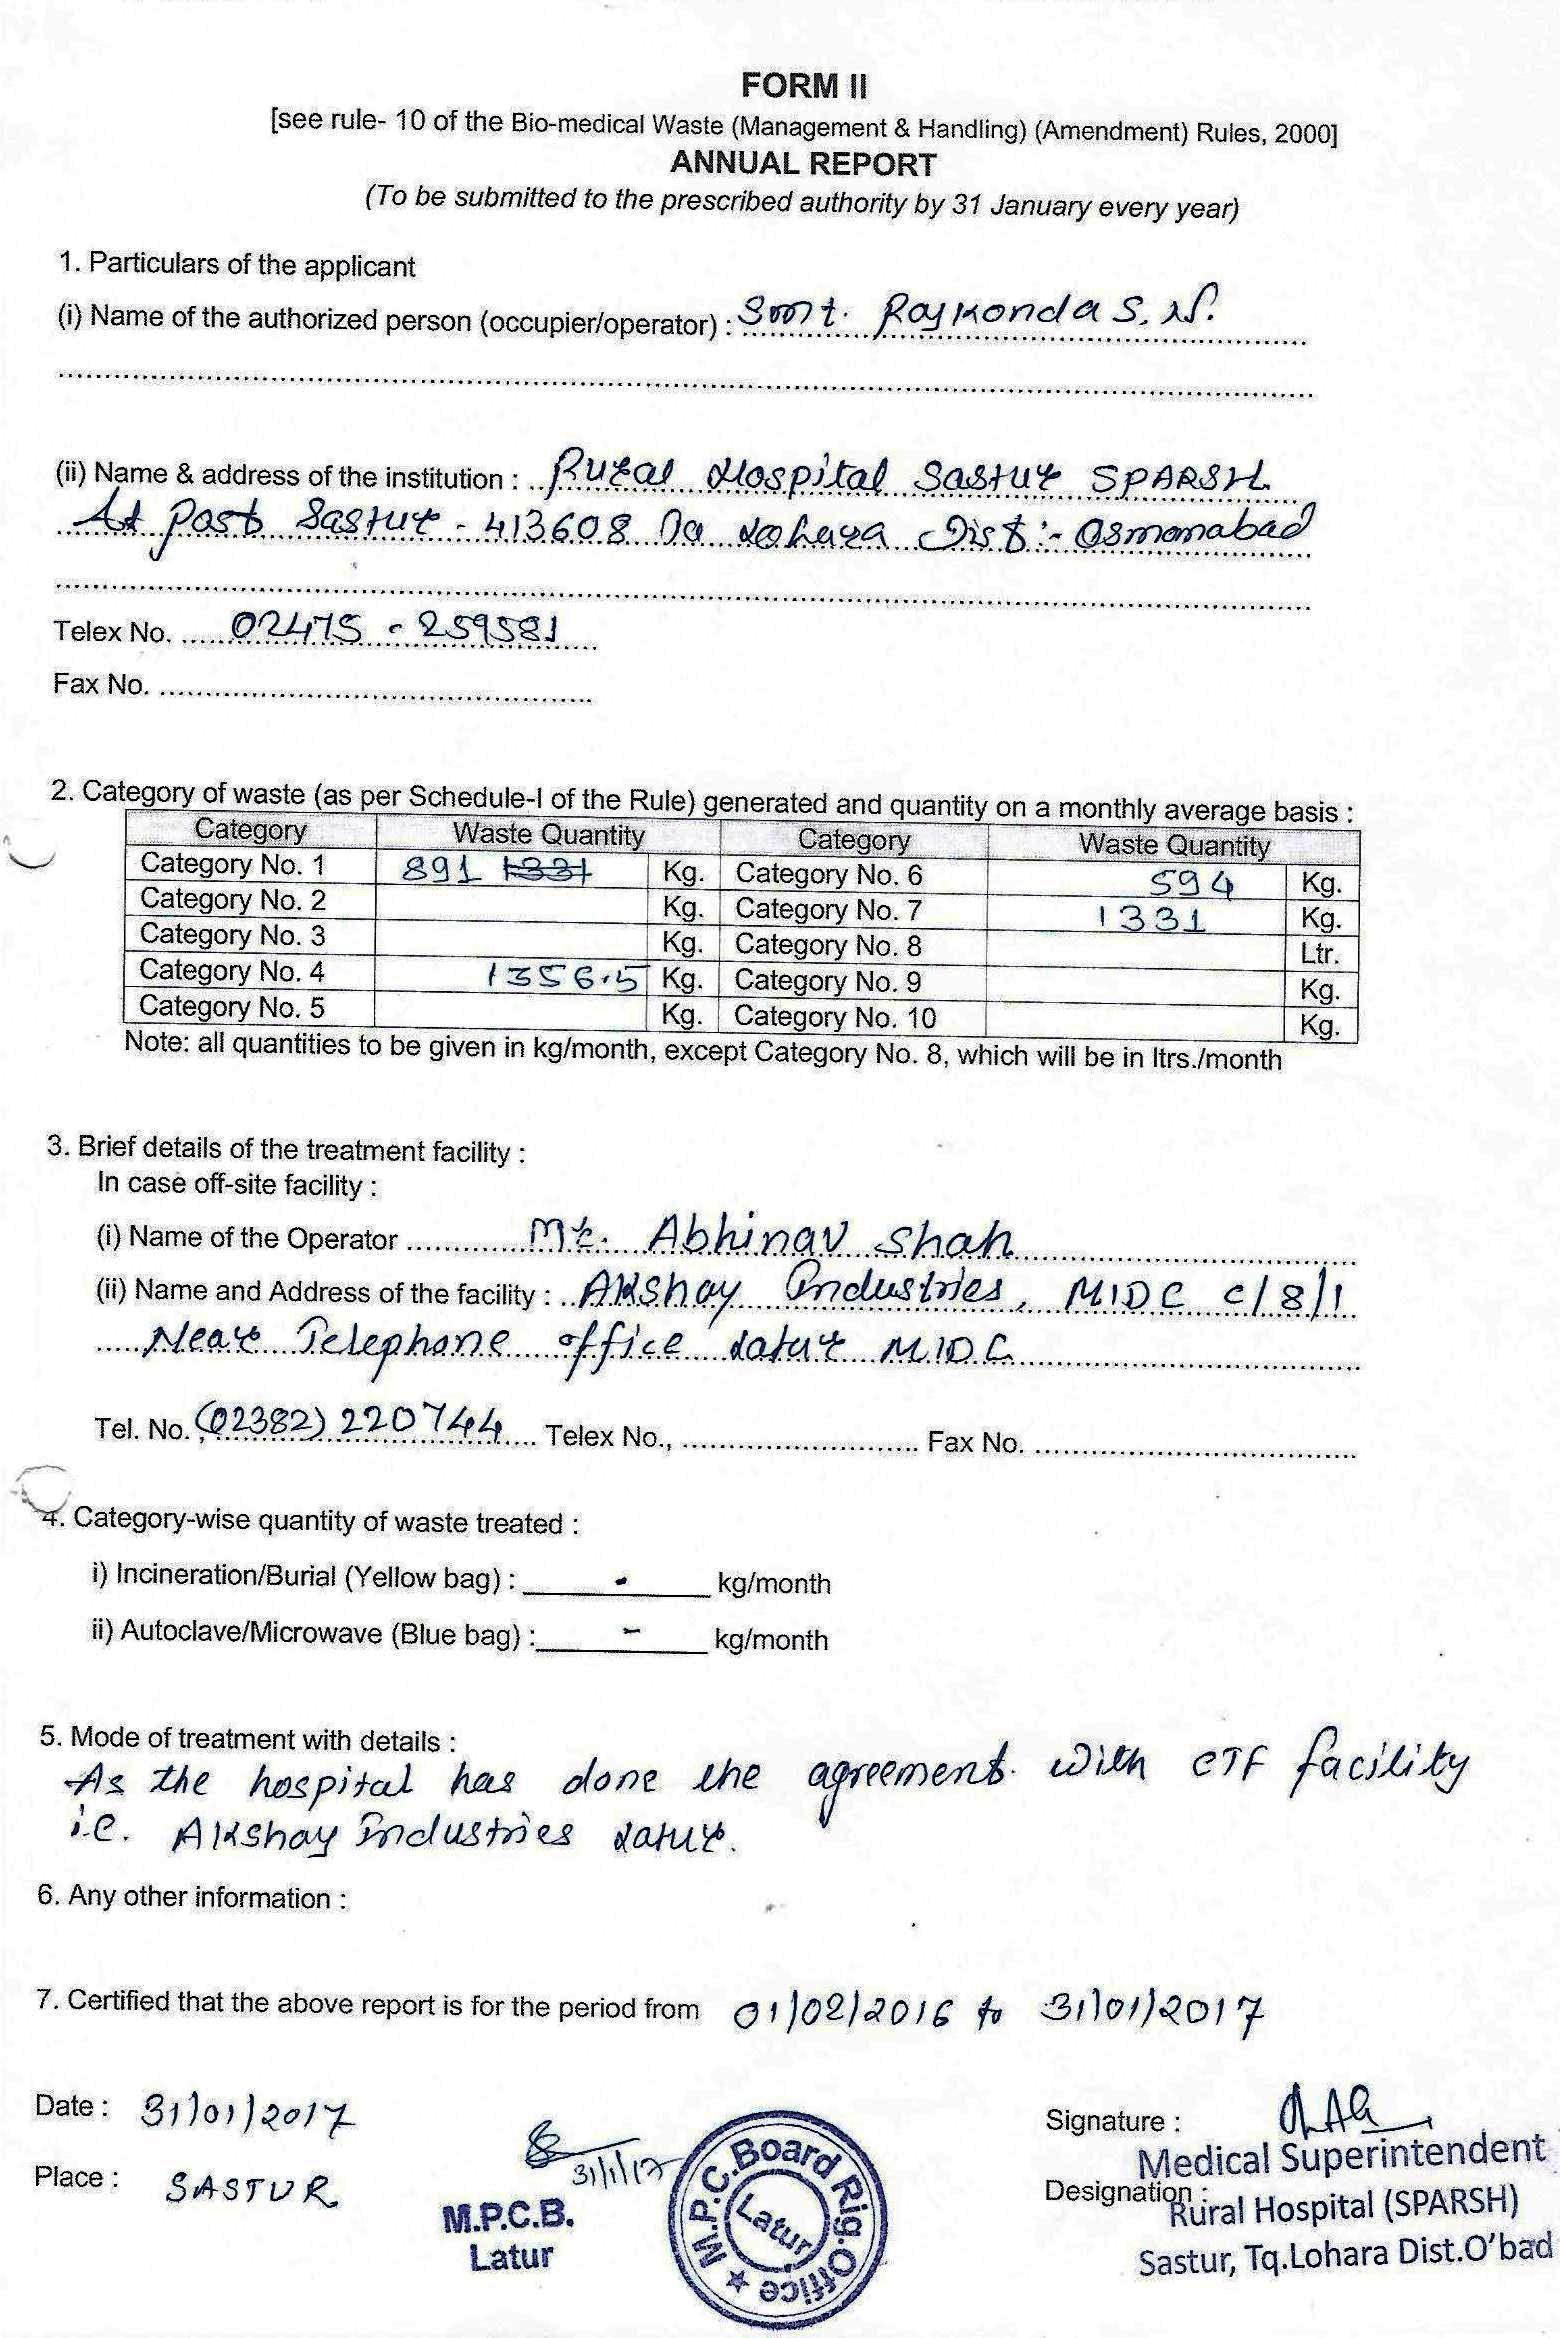 FORM II
[see rule- 10 of the Bio-medical Waste (Management & Handling) (Amendment) Rules, 2000]
ANNUAL REPORT
(To be submitted to the prescribed authority by 31 January every year)
1. Particulars of the applicant
(i) Name of the authorized person (occupier/operator) : Smt. Rajkonda S. N.
(ii) Name & address of the institution : Rural Hospital Sastur SPARSH
At Post Sastur - 413608 Lohara Dist :- Osmanabad
Telex No. 02475 - 259581
Fax No.
2. Category of waste (as per Schedule-I of the Rule) generated and quantity on a monthly average basis :
Category Waste Quantity Category Waste Quantity
Category No. 1 891 1331 Kg. Category No. 6 594 Kg.
Category No. 2 Kg. Category No. 7 1331 Kg.
Category No. 3 Kg. Category No. 8 Ltr.
Category No. 4 1356.5 Kg. Category No. 9 Kg.
Category No. 5 Kg. Category No. 10 Kg.
Note: all quantities to be given in kg/month, except Category No. 8, which will be in ltrs./month
3. Brief details of the treatment facility :
In case off-site facility :
(i) Name of the Operator Mr. Abhinav Shah
(ii) Name and Address of the facility : Akshay Industries, MIDC C/8/1
Near Telephone office Latur MIDC
Tel. No. (02382) 220744 Telex No., Fax No.
4. Category-wise quantity of waste treated :
i) Incineration/Burial (Yellow bag) : - kg/month
ii) Autoclave/Microwave (Blue bag) : - kg/month
5. Mode of treatment with details :
As the hospital has done the agreement with CTF facility
i.e. Akshay Industries Latur.
6. Any other information :
7. Certified that the above report is for the period from 01/02/2016 to 31/01/2017
Date : 31/01/2017
Place : SASTUR
31/1/17
M.P.C.B.
Latur
M.P.C.Board Rig.Office ★
Latur
Signature :
Designation :
Medical Superintendent
Rural Hospital (SPARSH)
Sastur, Tq.Lohara Dist.O'bad